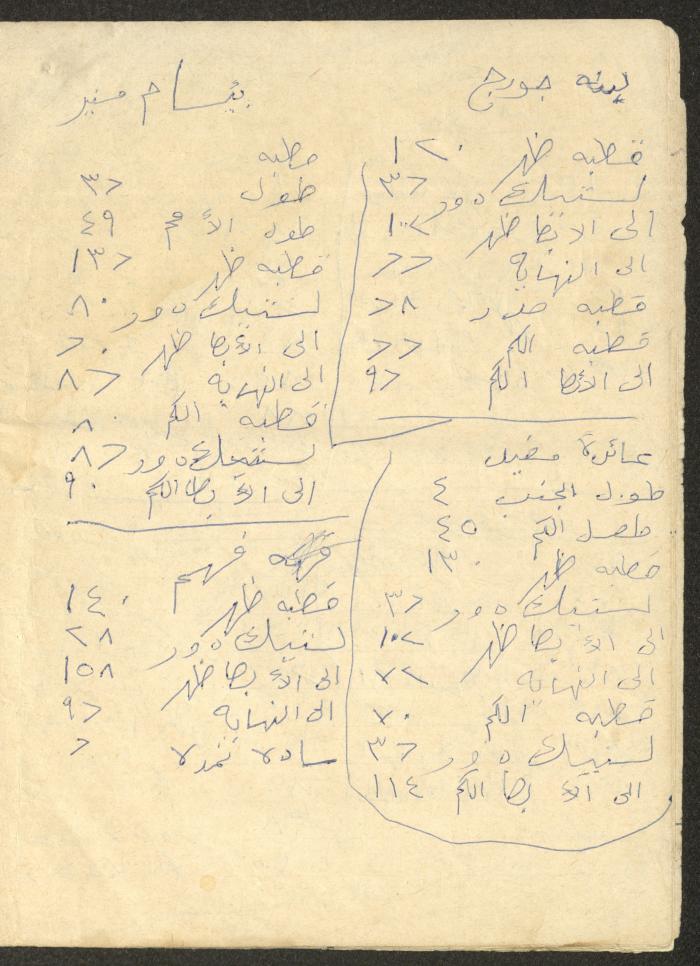 لينه جورج
قطبه ظهر ١٢٠
لستيك دور ٣٢
الى الابط ظهر ١٠٢
الى النهاية ٢٢
قطبه صدر ٢٨
قطبه الكم ٢٢
الى الأبط الكم ٩٢
عائدة مفيد
طول الجنب ٤
طول الكم ٤٥
قطبه ظهر ١٣٠
لستيك دور ٣٢
الى الأبط ظهر ١٠٢
الى النهاية ٧٢
قطبه الكم ٧٠
لستيك دور ٣٢
الى الأبط الكم ١١٤
بسام منير
قطبه
طول ٣٢
طول الأكم ٤٩
قطبه ظهر ١٣٢
لستيك دور ٨٠
الى الأبط ظهر ٢٠
الى النهاية ٨٢
قطبه الكم ٨٠
لستيك دور ٨٢
الى الأبط الكم ٩٠
فهيم
قطبه ظهر ١٤٠
لستيك دور ٢٨
الى الأبط ظهر ١٥٨
الى النهاية ٩٢
ساده نمره ٢